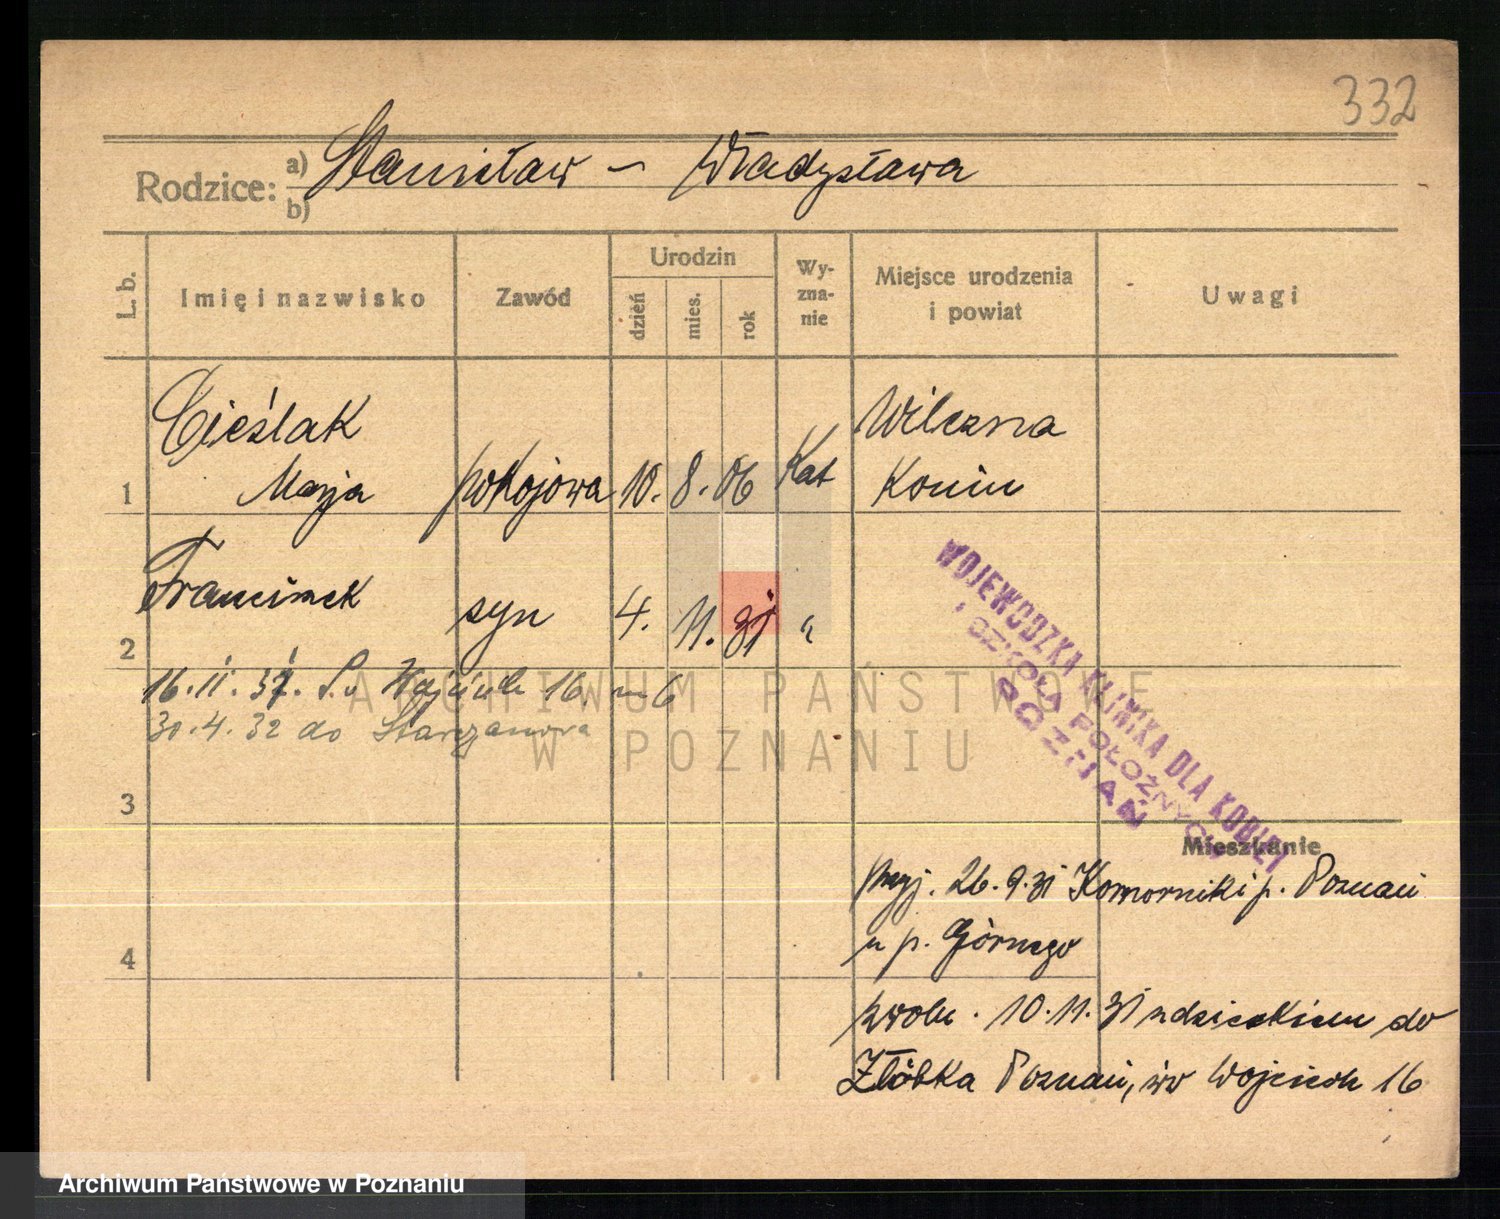 332
Rodzice: a) Stanisław – Władysława
b)
L. b. Imię i nazwisko Zawód Urodzin dzień mies. rok Wy-zna-nie Miejsce urodzenia i powiat Uwagi
Cieślak Wilczna
1 Marja pokojowa 10. 8. 06 Kat Konin
2 Franciszek syn 4. 11. 31 "
16. 11. 31. Św Wojciech 16. m 6
30. 4. 32 do
3
4
WOJEWÓDZKA KLINIKA DLA KOBIET
I SZKOŁA POŁOŻNYCH
POZNAŃ
Mieszkanie
Przyj. 26. 9. 31 Komorniki p. Poznań
u p. Górnego
zwoln. 10. 11. 31 z dzieckiem do
Żłóbka Poznań, św Wojciech 16
ARCHIWUM PAŃSTWOWE
W POZNANIU
Archiwum Państwowe w Poznaniu